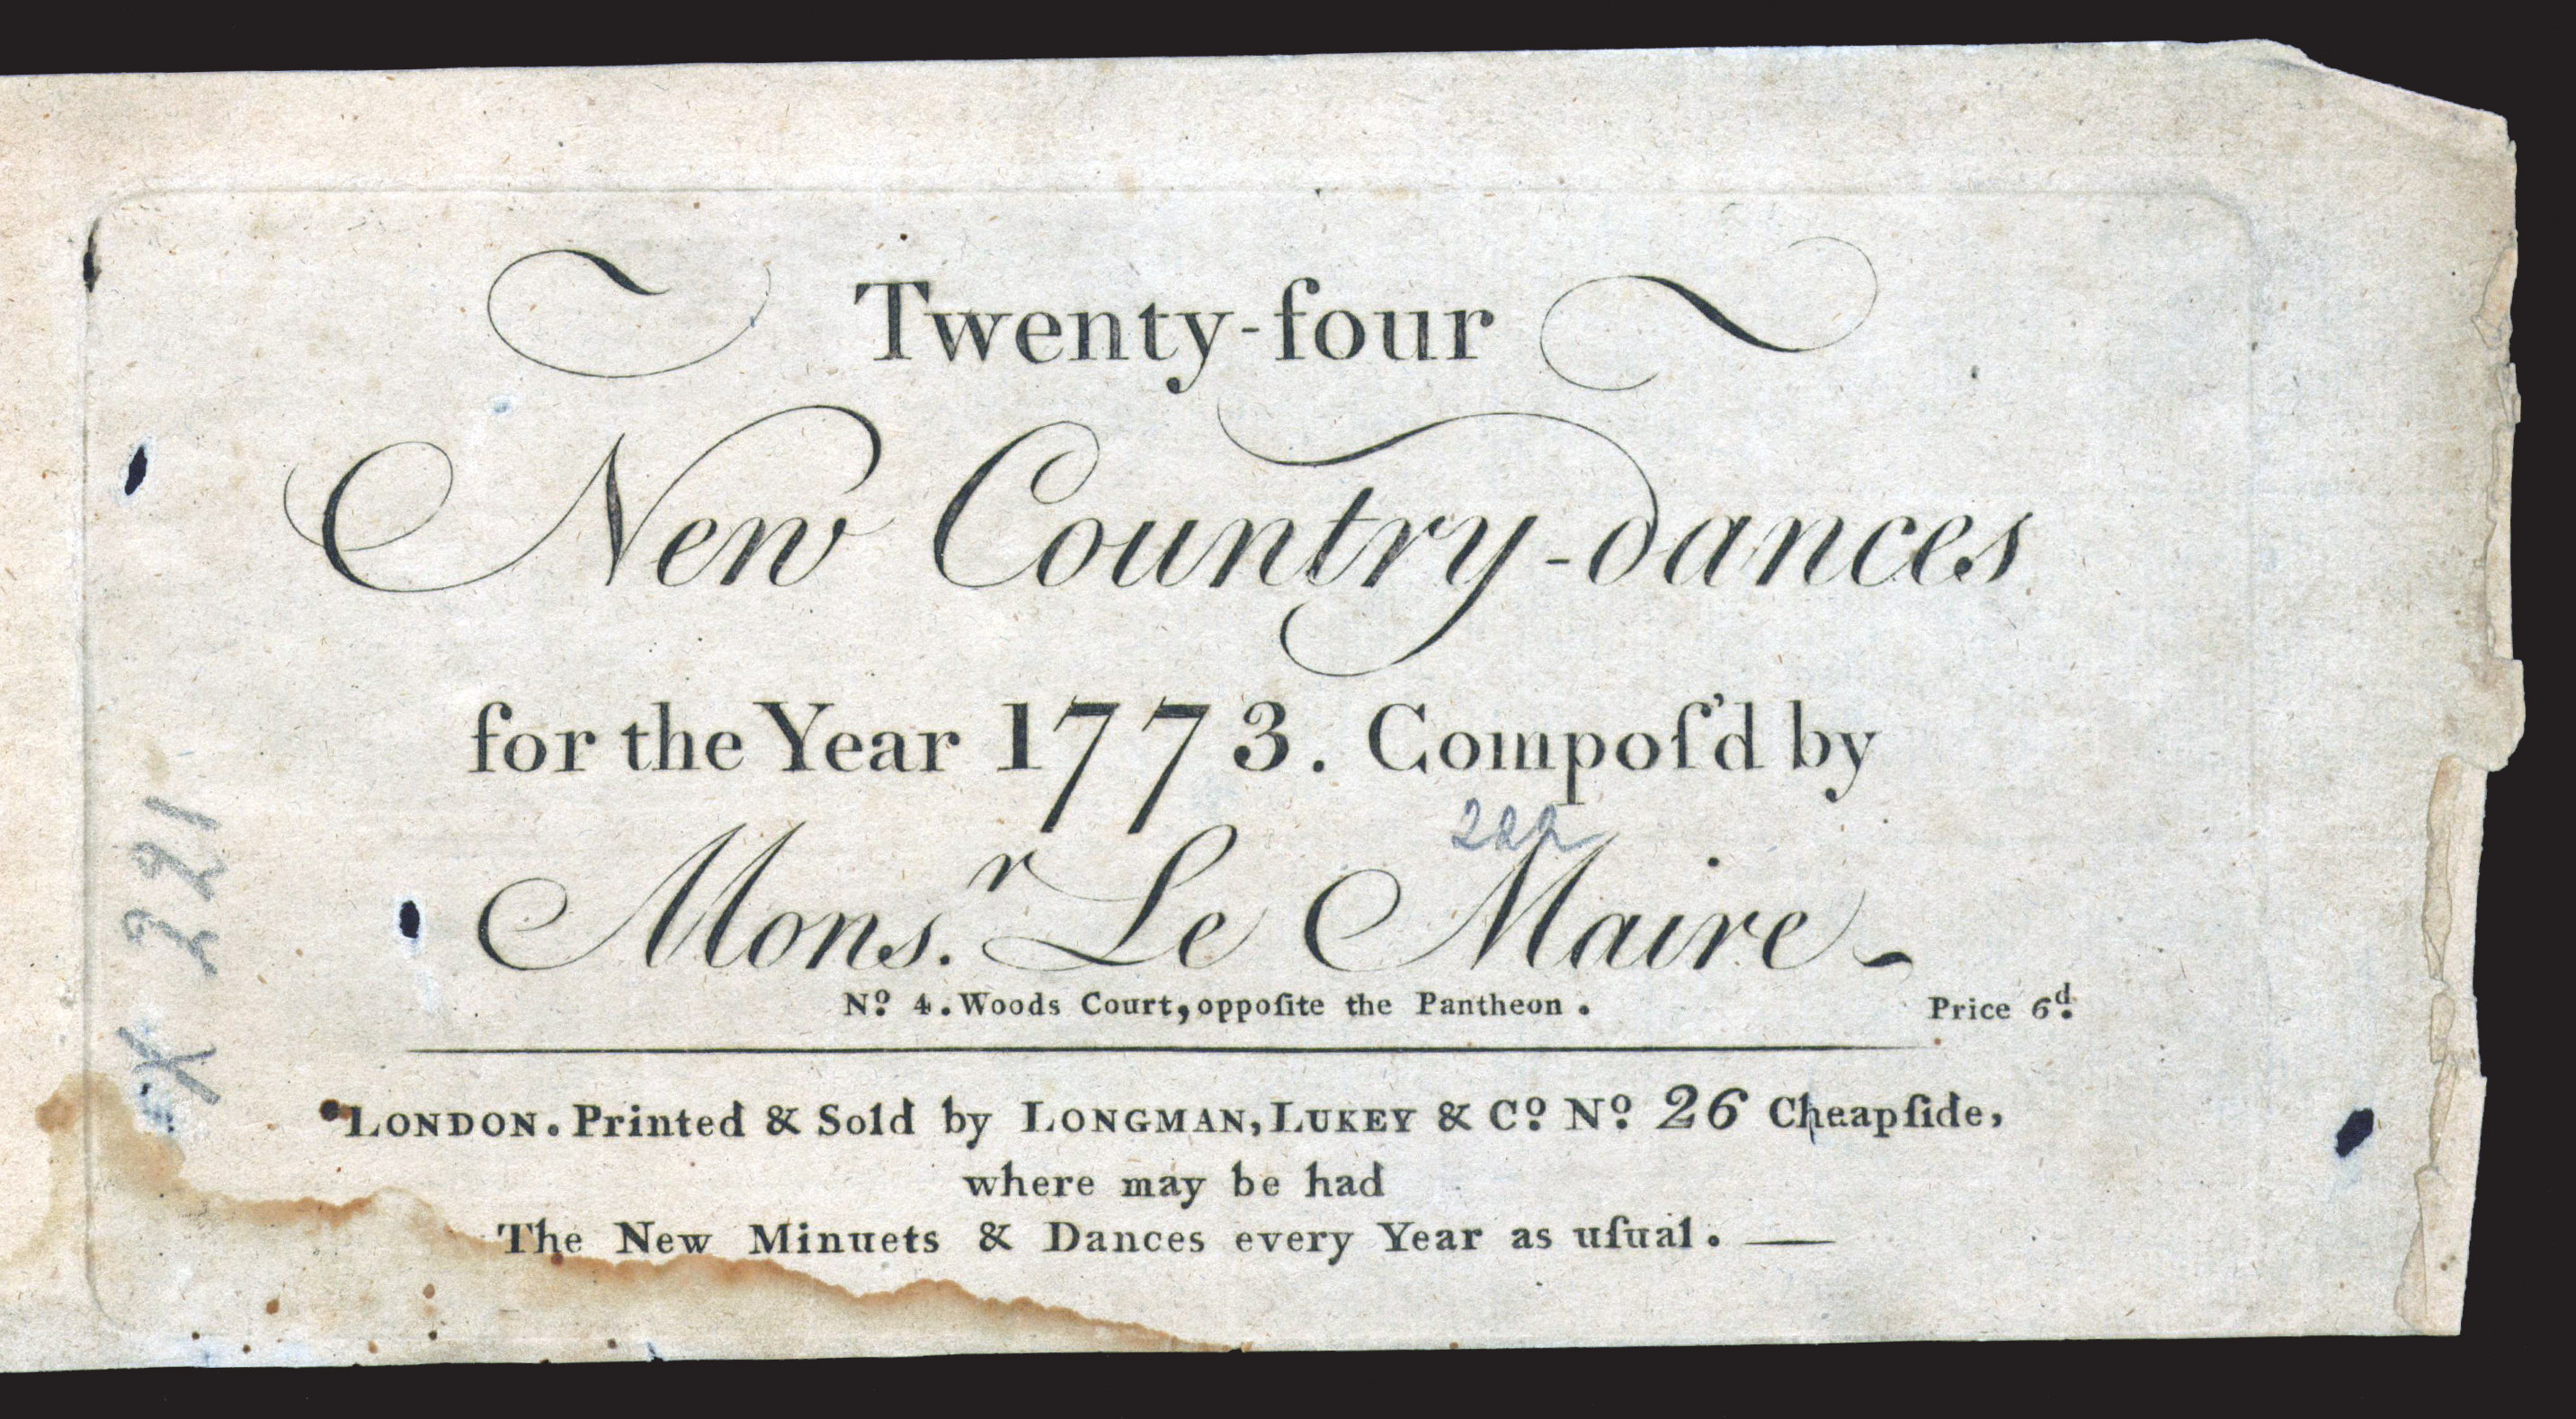 Twenty-four
New Country-dances
for the Year 1773. Compoſ'd by
Mons.r Le Maire
No. 4. Woods Court, oppoſite the Pantheon.
Price 6d.
LONDON. Printed & Sold by LONGMAN, LUKEY & Co. No. 26 Cheapſide,
where may be had
The New Minuets & Dances every Year as uſual. —